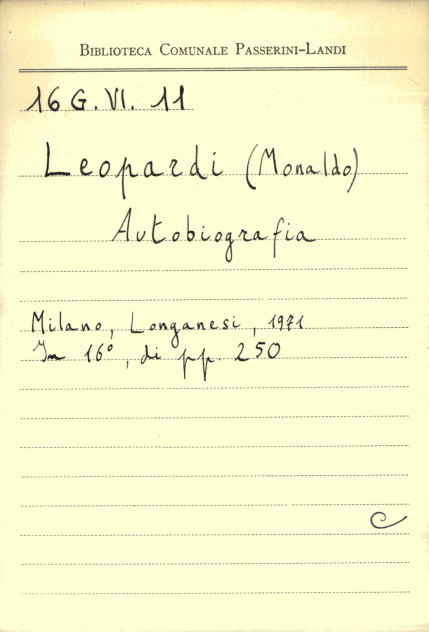 BIBLIOTECA COMUNALE PASSERINI-LANDI
16 G. VI. 11
Leopardi (Monaldo)
Autobiografia
Milano, Longanesi, 1971
In 16°, di pp. 250
C